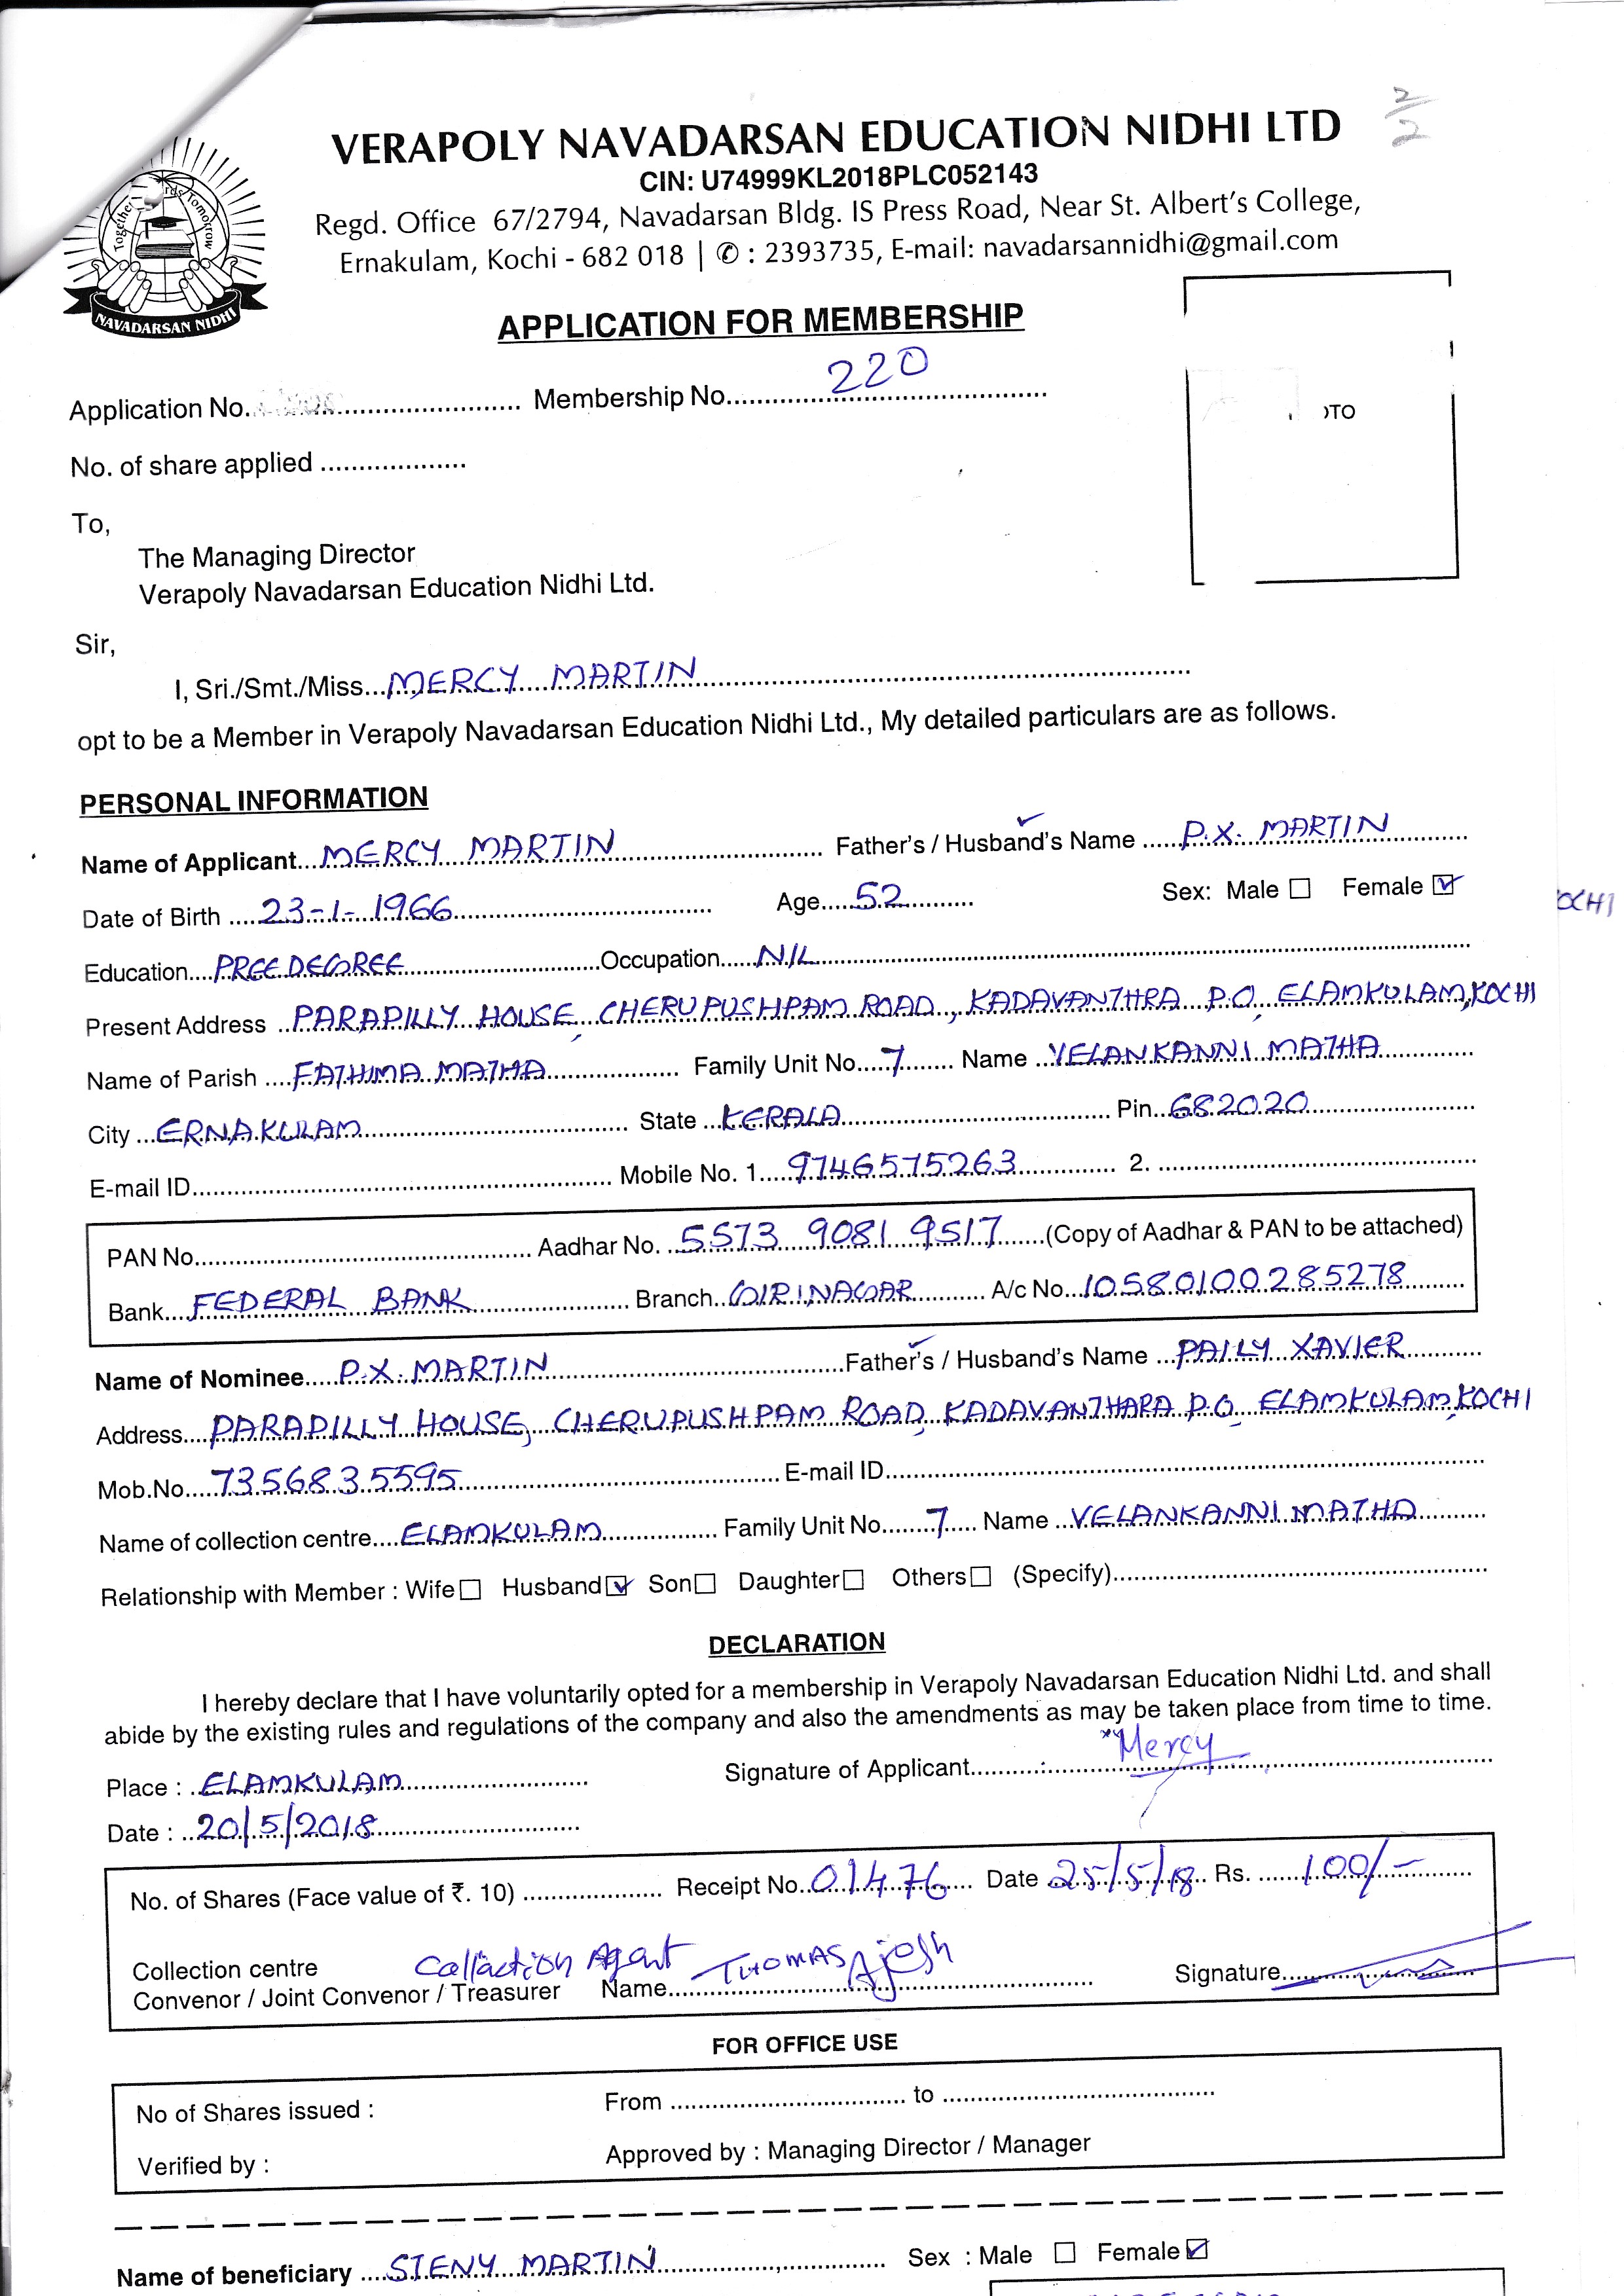 VERAPOLY NAVADARSAN EDUCATION NIDHI LTD
2/2
CIN: U74999KL2018PLC052143
Regd. Office 67/2794, Navadarsan Bldg. IS Press Road, Near St. Albert's College,
Ernakulam, Kochi - 682 018 | ✆ : 2393735, E-mail: navadarsannidhi@gmail.com
Together Tomorrow
NAVADARSAN NIDHI
APPLICATION FOR MEMBERSHIP
Application No. Membership No. 220
OTO
No. of share applied
To,
The Managing Director
Verapoly Navadarsan Education Nidhi Ltd.
Sir,
I, Sri./Smt./Miss. MERCY MARTIN
opt to be a Member in Verapoly Navadarsan Education Nidhi Ltd., My detailed particulars are as follows.
PERSONAL INFORMATION
Name of Applicant MERCY MARTIN Father's / Husband's Name P.X. MARTIN
Date of Birth 23-1-1966 Age 52 Sex: Male ☐ Female ☑
OCHI
Education PREE DEGREE Occupation NIL
Present Address PARAPILLY HOUSE, CHERUPUSHPAM ROAD, KADAVANTHRA P.O, ELAMKULAM, KOCHI
Name of Parish FATHIMA MATHA Family Unit No. 7 Name VELANKANNI MATHA
City ERNAKULAM State KERALA Pin 682020
E-mail ID Mobile No. 1 9746575263 2.
PAN No. Aadhar No. 5573 9081 9517 (Copy of Aadhar & PAN to be attached)
Bank FEDERAL BANK Branch GIRINAGAR A/c No. 10580100285278
Name of Nominee P.X. MARTIN Father's / Husband's Name PAILY XAVIER
Address PARAPILLY HOUSE, CHERUPUSHPAM ROAD, KADAVANTHARA P.O, ELAMKULAM, KOCHI
Mob.No. 7356835595 E-mail ID
Name of collection centre ELAMKULAM Family Unit No. 7 Name VELANKANNI MATHA
Relationship with Member : Wife ☐ Husband ☑ Son ☐ Daughter ☐ Others ☐ (Specify)
DECLARATION
I hereby declare that I have voluntarily opted for a membership in Verapoly Navadarsan Education Nidhi Ltd. and shall
abide by the existing rules and regulations of the company and also the amendments as may be taken place from time to time.
Place : ELAMKULAM Signature of Applicant Mercy
Date : 20/5/2018
No. of Shares (Face value of ₹. 10) Receipt No. 01476 Date 25/5/18 Rs. 100/-
Collection centre Collaction Agent
Convenor / Joint Convenor / Treasurer Name THOMAS Ajesh Signature
FOR OFFICE USE
No of Shares issued : From to
Verified by : Approved by : Managing Director / Manager
Name of beneficiary STENY MARTIN Sex : Male ☐ Female ☑